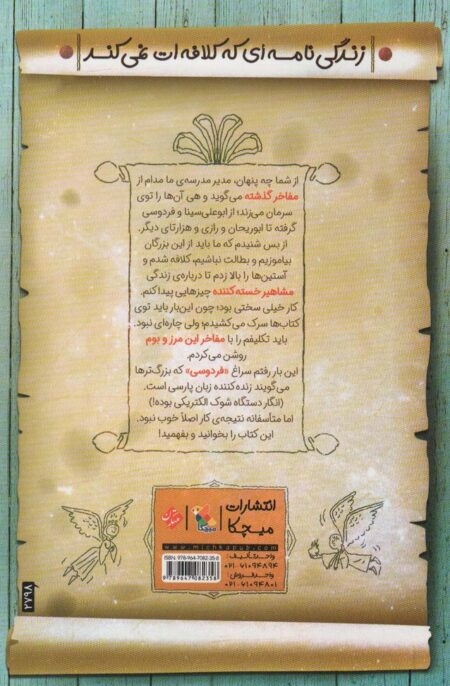 زندگی نامه ای که کلافه ات نمی کند
از شما چه پنهان، مدیر مدرسه‌ی ما مدام از
مفاخر گذشته می‌گوید و هی آن‌ها را توی
سرمان می‌زند؛ از ابوعلی‌سینا و فردوسی
گرفته تا ابوریحان و رازی و هزارتای دیگر.
از بس شنیدم که ما باید از این بزرگان
بیاموزیم و بطالت نباشیم، کلافه شدم و
آستین‌ها را بالا زدم تا درباره‌ی زندگی
مشاهیر خسته‌کننده چیزهایی پیدا کنم.
کار خیلی سختی بود؛ چون این‌بار باید توی
کتاب‌ها سرک می‌کشیدم؛ ولی چاره‌ای نبود.
باید تکلیفم را با مفاخر این مرز و بوم
روشن می‌کردم.
این بار رفتم سراغ «فردوسی» که بزرگ‌ترها
می‌گویند زنده‌کننده زبان پارسی است.
(انگار دستگاه شوک الکتریکی بوده!)
اما متأسفانه نتیجه‌ی کار اصلاً خوب نبود.
این کتاب را بخوانید و بفهمید!
انتشارات
میچکا
میچکا
مبتکران
www.michkapub.com
ISBN: 978-964-7082-35-8
9 789647 082358
واحد تألیف:
۰۲۱-۶۱۰۹۴۸۹۴
واحد فروش:
۰۲۱-۶۱۰۹۴۸۰۱
۲۷۹۸